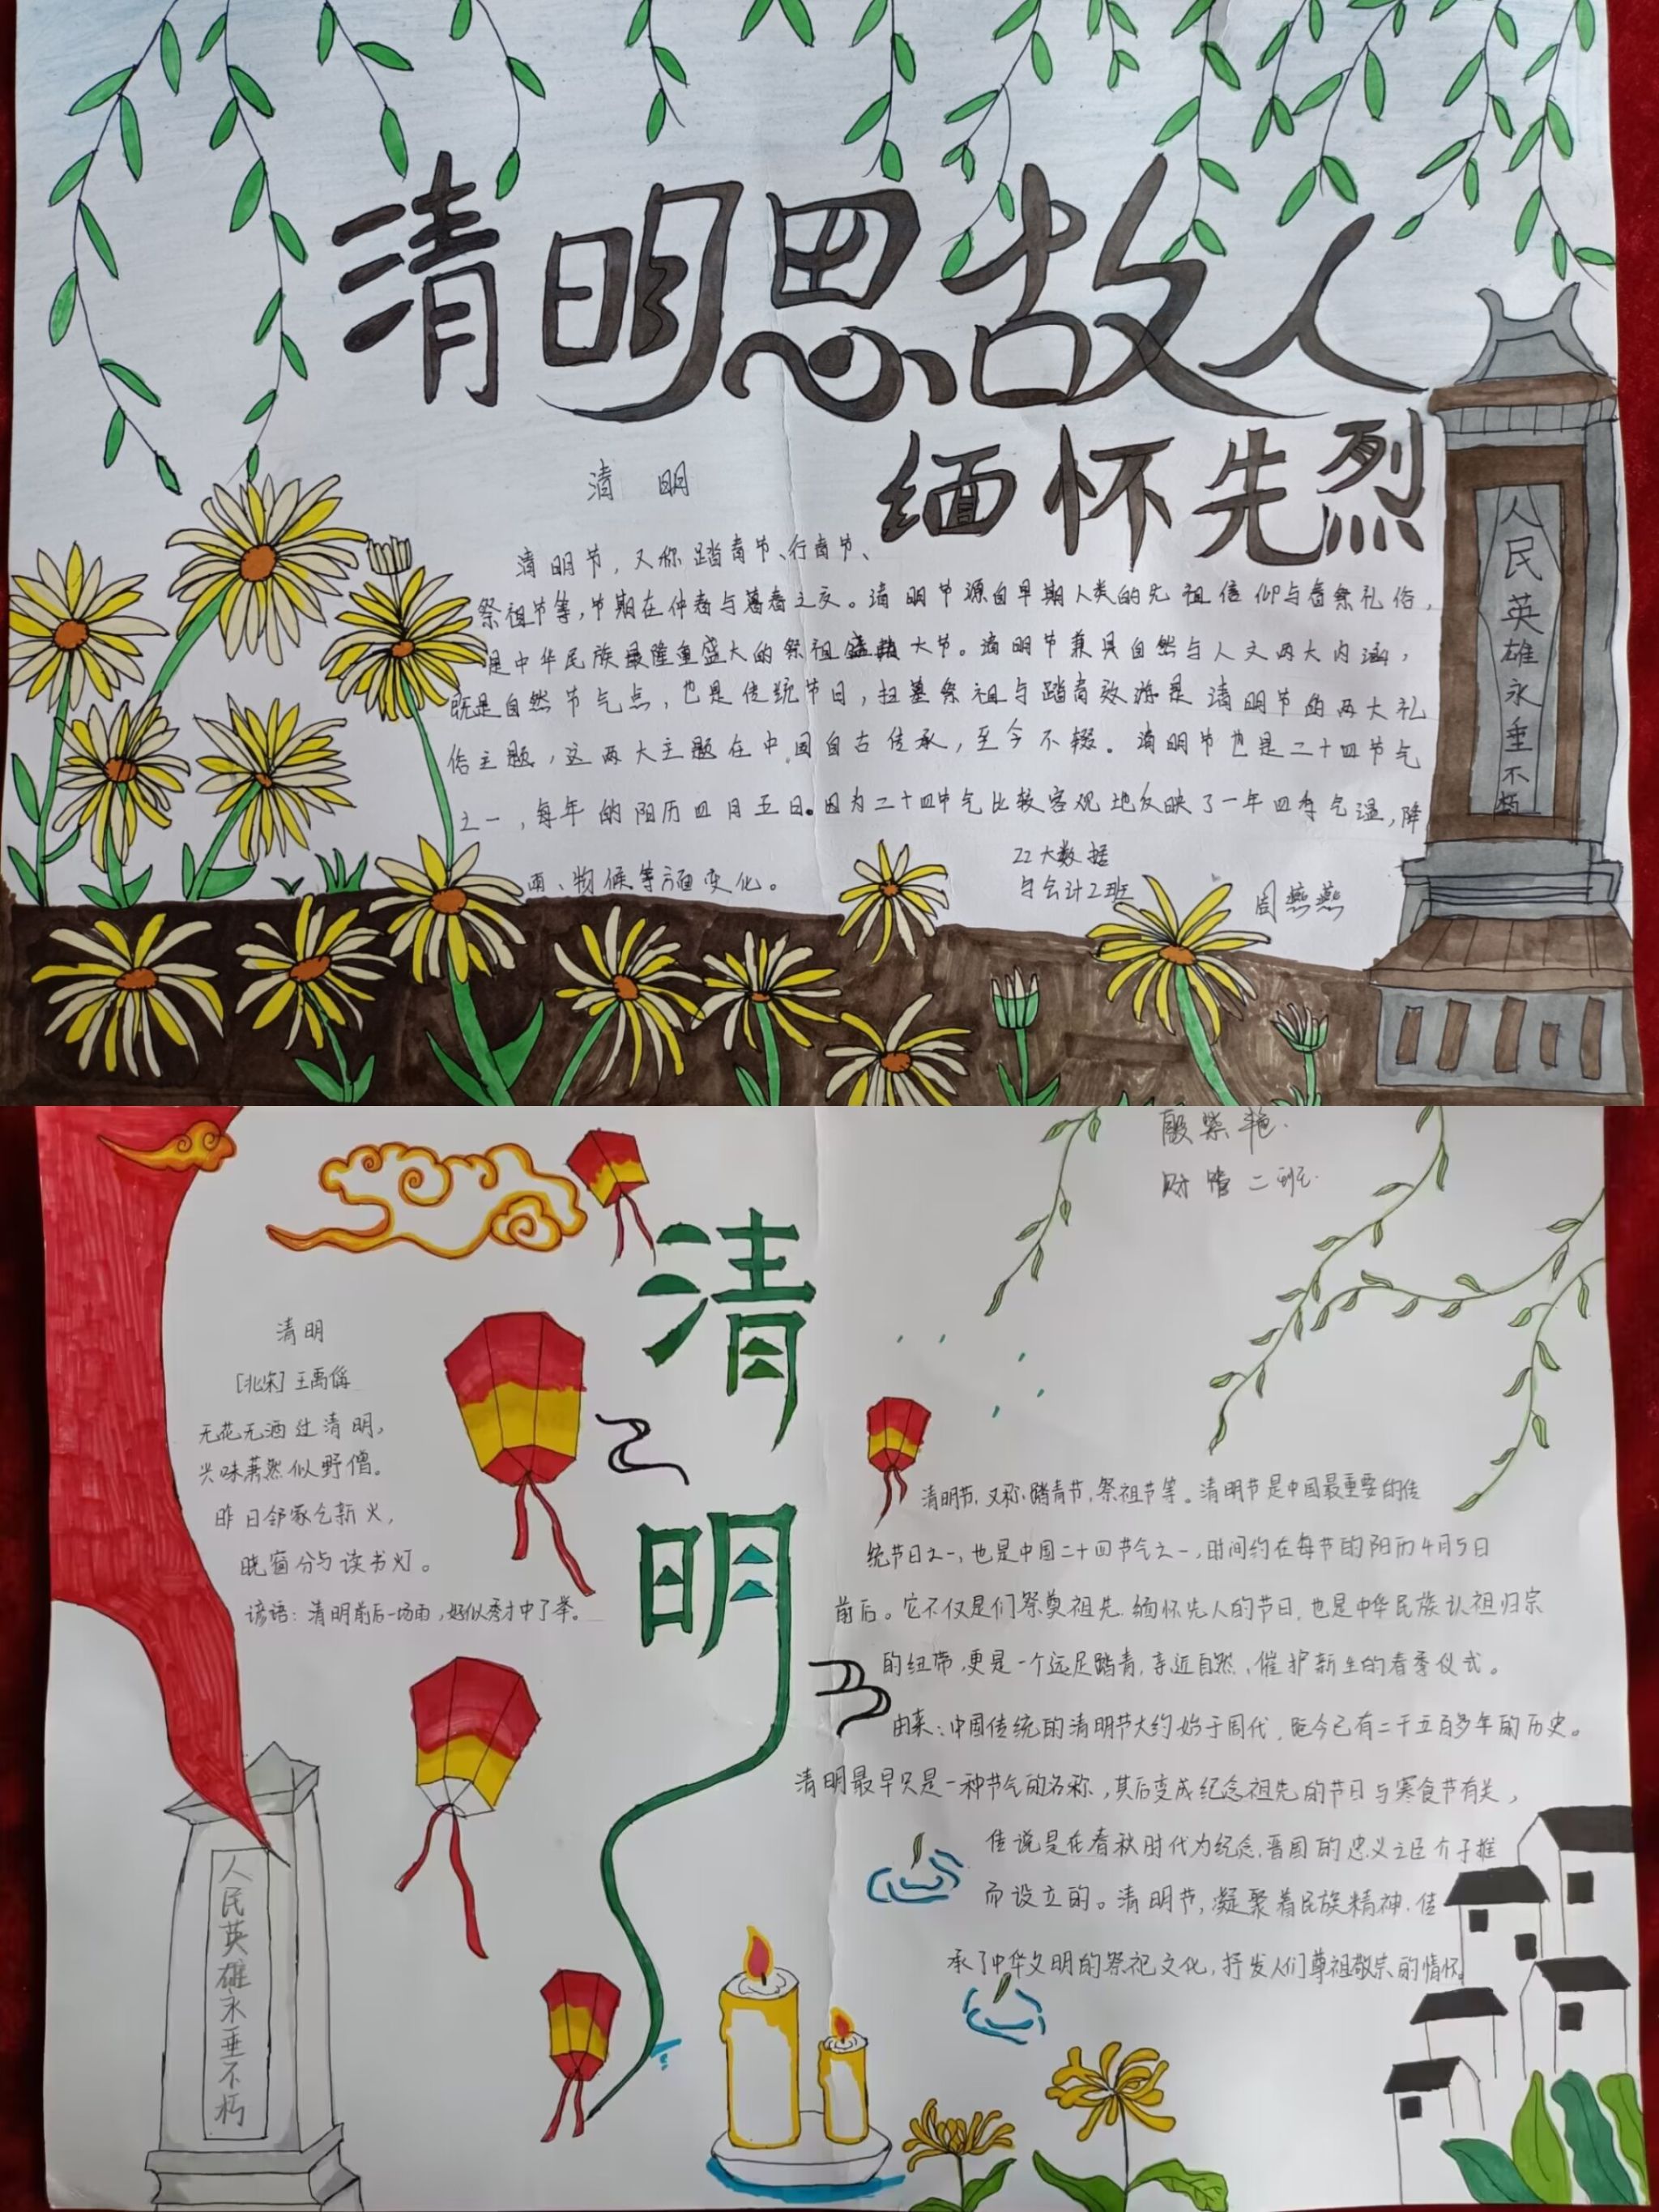 清明思故人
缅怀先烈
清 明
清明节,又称踏青节、行青节、
祭祖节等,节期在仲春与暮春之交。清明节源自早期人类的先祖信仰与春祭礼俗,
是中华民族最隆重盛大的祭祖大节。清明节兼具自然与人文两大内涵,
既是自然节气点,也是传统节日,扫墓祭祖与踏青郊游是清明节的两大礼
俗主题,这两大主题在中国自古传承,至今不辍。清明节也是二十四节气
之一,每年的阳历四月五日。因为二十四节气比较客观地反映了一年四季气温,降
雨、物候等方面变化。
22大数据
与会计2班
周燕燕
人民英雄永垂不朽
殷紫艳.
财管二班.
清明
清明
[北宋] 王禹偁
无花无酒过清明,
兴味萧然似野僧。
昨日邻家乞新火,
晓窗分与读书灯。
谚语:清明前后一场雨,好似秀才中了举。
清明节,又称、踏青节,祭祖节等。清明节是中国最重要的传
统节日之一,也是中国二十四节气之一,时间约在每节的阳历4月5日
前后。它不仅是们祭奠祖先.缅怀先人的节日,也是中华民族认祖归宗
的纽带,更是一个远足踏青,亲近自然、催护新生的春季仪式。
由来:中国传统的清明节大约始于周代,距今已有二千五百多年的历史。
清明最早只是一种节气的名称,其后变成纪念祖先的节日与寒食节有关,
传说是在春秋时代为纪念.晋国的忠义之臣介子推
而设立的。清明节,凝聚着民族精神.传
承了中华文明的祭祀文化,抒发人们尊祖敬宗的情怀。
人民英雄永垂不朽